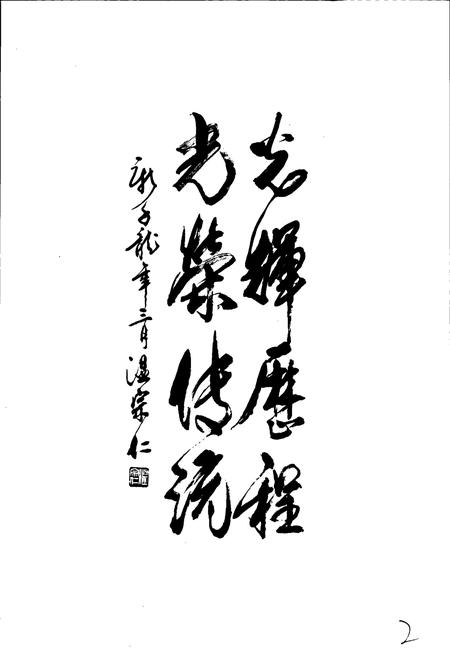 光輝歷程
光榮傳統
龍年三月溫宗仁
2